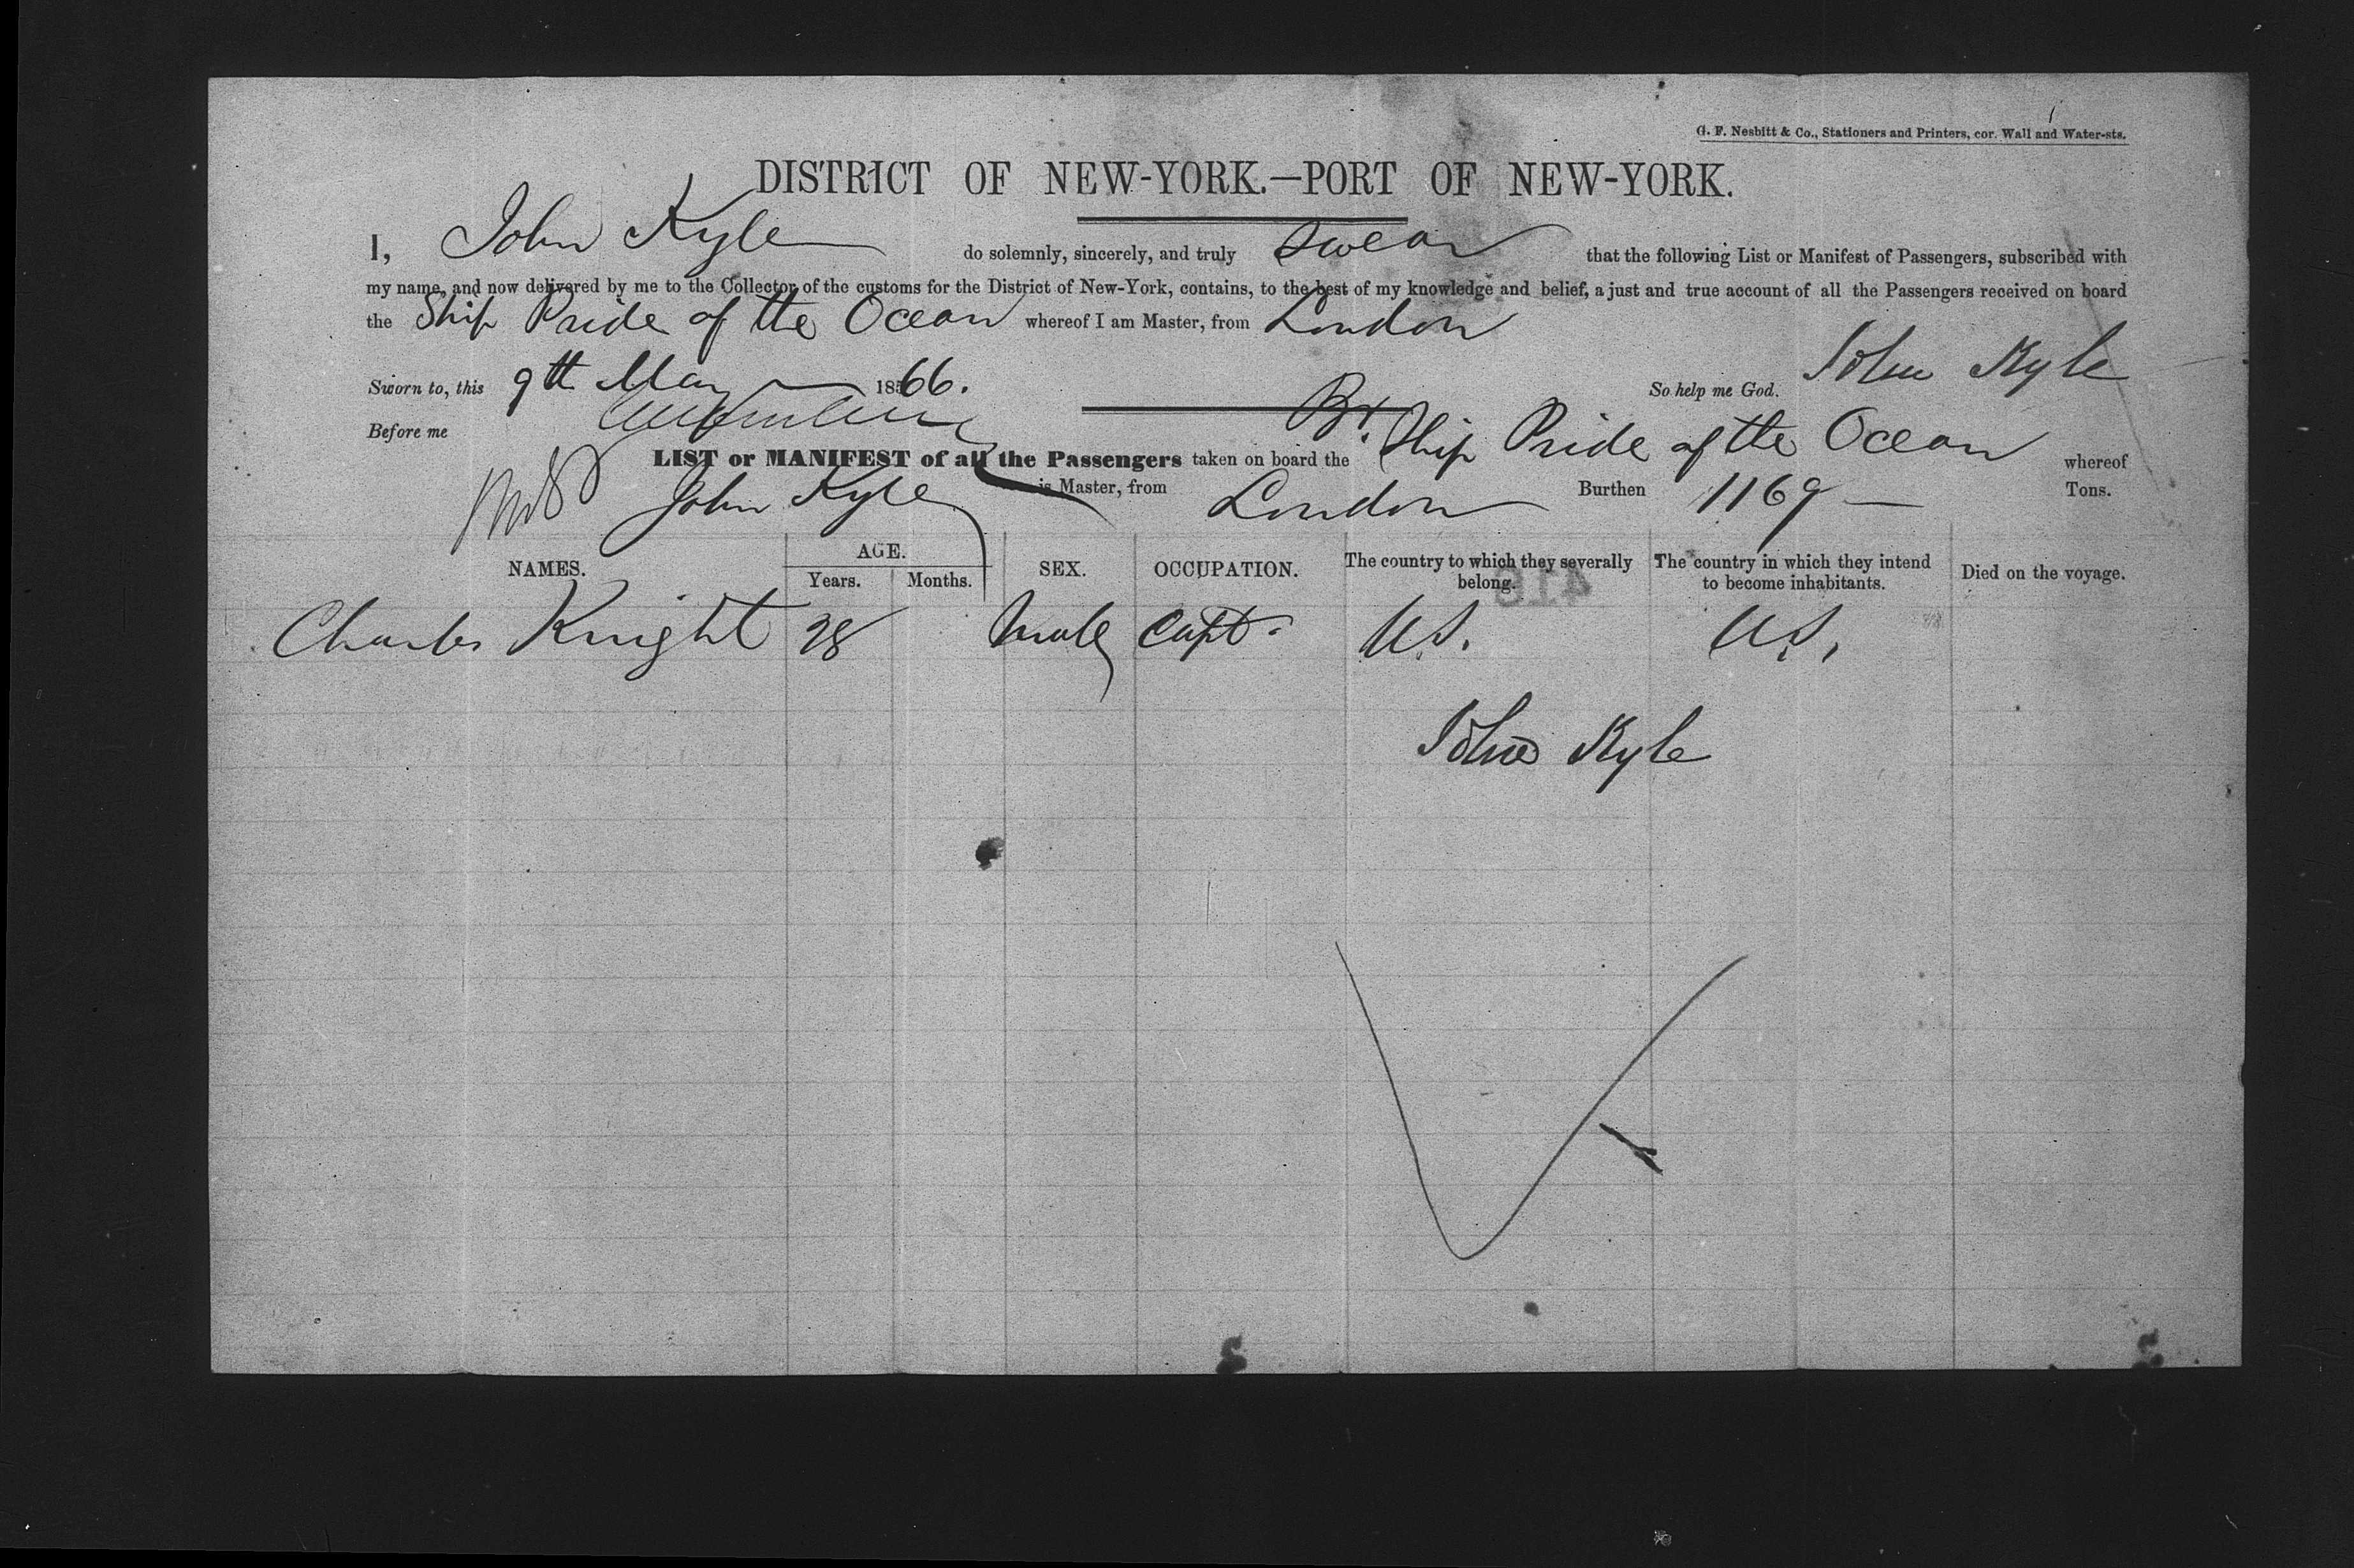 G. F. Nesbitt & Co., Stationers and Printers, cor. Wall and Water-sts.
DISTRICT OF NEW-YORK.—PORT OF NEW-YORK.
I, John Kyle do solemnly, sincerely, and truly swear that the following List or Manifest of Passengers, subscribed with
my name, and now delivered by me to the Collector of the customs for the District of New-York, contains, to the best of my knowledge and belief, a just and true account of all the Passengers received on board
the Ship Pride of the Ocean whereof I am Master, from London
Sworn to, this 9th May 1866. So help me God. John Kyle
Before me
LIST or MANIFEST of all the Passengers taken on board the Br. Ship Pride of the Ocean whereof
John Kyle is Master, from London Burthen 1169 Tons.
NAMES. AGE. Years. Months. SEX. OCCUPATION. The country to which they severally belong. The country in which they intend to become inhabitants. Died on the voyage.
Charles Knight 28 Male Capt. U.S. U.S.
John Kyle